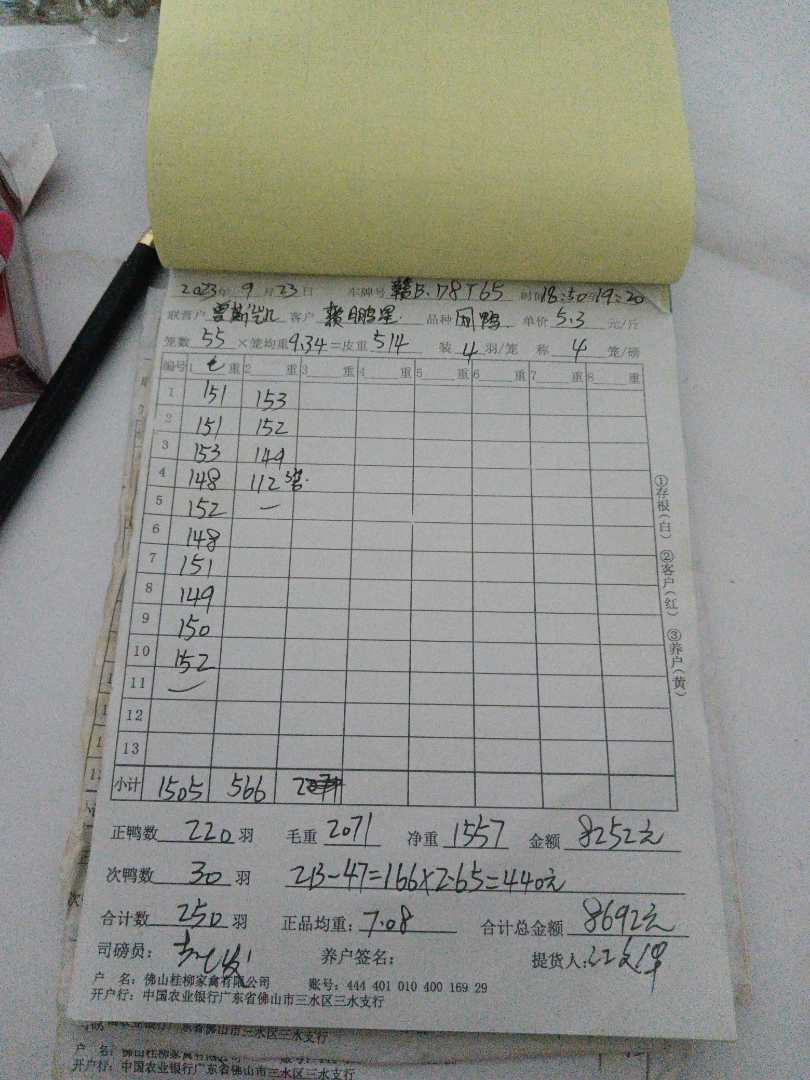 2023年 9 月 23 日 车牌号 赣B.D8T65 时间 18:50与19:20
联营户 客户 赣鹏星 品种 司鸭 单价 5.3 元/斤
笼数 55 ×笼均重 9.34 =皮重 514 装 4 羽/笼 称 4 笼/磅
编号 1 毛 重 2 重 3 重 4 重 5 重 6 重 7 重 8 重
1 151 153
2 151 152
3 153 149
4 148 112 3笼.
5 152 一
6 148
7 151
8 149
9 150
10 152
11 一
12
13
小计 1505 566
正鸭数 220 羽 毛重 2071 净重 1557 金额 8252元
次鸭数 30 羽 213-47=166×2.65=440元
合计数 250 羽 正品均重: 7.08 合计总金额 8692元
司磅员: 养户签名: 提货人:
户 名: 佛山桂柳家禽有限公司 账号: 444 401 010 400 169 29
开户行: 中国农业银行广东省佛山市三水区三水支行
①存根(白) ②客户(红) ③养户(黄)
开户行: 中国农业银行广东省佛山市三水区三水支行